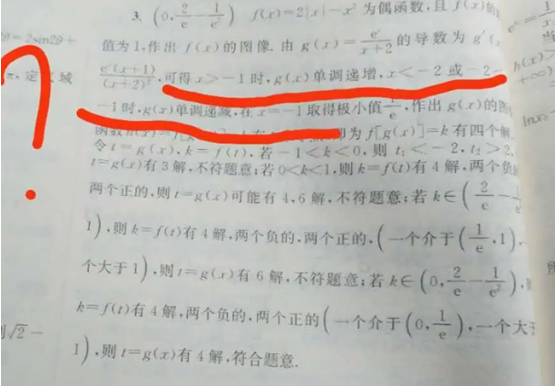 3. (0, 2/e − 1/e²) f(x)=2|x|−x² 为偶函数,且 f(x)的
=2sin2θ+ 值为1,作出 f(x)的图像.由 g(x)=eˣ/(x+2) 的导数为 g′(x
定 域 eˣ(x+1)/(x+2)²,可得 x>−1 时,g(x)单调递增,x<−2 或 −2
−1时,g(x)单调递减,在 x=−1取得极小值 1/e,作出 g(x)的图
即为 f[g(x)]=k 有四个解
令 t=g(x),k=f(t),若 −1<k<0,则 t₁<−2,t₂>2,
t=g(x)有3解,不符题意;若 0<k<1,则 k=f(t)有4解,两个负
两个正的,则 t=g(x)可能有4,6解,不符题意;若 k∈(2/e −
1),则 k=f(t)有4解,两个负的,两个正的,(一个介于(1/e,1),
个大于1),则 t=g(x)有6解,不符题意;若 k∈(0, 2/e − 1/e²),
k=f(t)有4解,两个负的,两个正的(一个介于(0, 1/e),一个大于
√2− 1),则 t=g(x)有4解,符合题意.